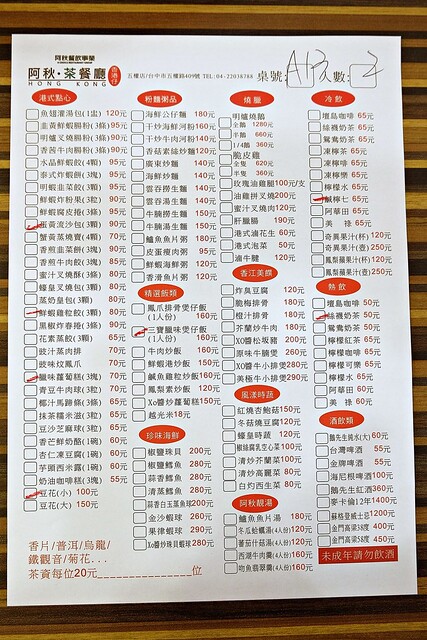 阿秋餐飲事業
阿秋·茶餐廳
港添仔
HONG KONG
五權店/台中市五權路409號 TEL:04-22038788
桌號: A13 人數: 2
港式點心
魚翅灌湯包(1盅) 120元
韭黃鮮蝦腸粉(3條) 95元
明爐叉燒腸粉(3條) 95元
香茜牛肉腸粉(3條) 90元
水晶鮮蝦餃(4顆) 95元
泰式炸蝦餅(3塊) 90元
明蝦韭菜餃(3顆) 90元
鮮蝦炸粉果(3粒) 90元
鮮蝦腐皮捲(3條) 90元
蛋黃流沙包(3個) 90元
蟹黃蒸燒賣(4顆) 70元
香煎韭菜餅(3塊) 90元
香煎牛肉餅(3塊) 85元
蜜汁叉燒酥(3條) 80元
蠔皇叉燒包(3顆) 80元
蒸奶皇包(3顆) 80元
鮮蝦雞粒餃(3顆) 80元
黑椒炸春捲(3條) 90元
花素蒸餃(3顆) 65元
豉汁蒸肉排 70元
豉味炆鳳爪 70元
臘味蘿蔔糕(3塊) 70元
青豆牛肉球(3粒) 70元
椰汁馬蹄條(3條) 65元
抹茶糯米滋(3粒) 65元
豆沙芝麻球(3粒) 60元
香芒鮮奶酪(1碗) 60元
杏仁凍豆腐(1碗) 60元
芋頭西米露(1碗) 55元
奶油咖啡糕(3塊) 55元
豆花(小) 100元
豆花(大) 150元
香片/普洱/烏龍/
鐵觀音/菊花...
茶資每位20元 位
粉麵粥品
海鮮公仔麵 180元
干炒海鮮河粉 160元
干炒牛肉河粉 140元
香菇素絲炒麵 120元
廣東炒麵 140元
海鮮炒麵 140元
雲吞撈生麵 140元
雲吞湯生麵 140元
牛腩撈生麵 150元
牛腩湯生麵 150元
鱸魚魚片粥 180元
皮蛋瘦肉粥 95元
鮮蝦海鮮粥 120元
香滑魚片粥 120元
精選飯類
鳳爪排骨煲仔飯
(1人份) 160元
三寶臘味煲仔飯
(1人份) 160元
牛肉炒飯 160元
鮮蝦港炒飯 150元
鹹魚雞粒炒飯 160元
鳳梨素炒飯 120元
Xo醬炒蘿蔔糕 150元
越光米 18元
珍味海鮮
椒鹽珠貝 200元
椒鹽鱈魚 280元
蒜香鱈魚 280元
清蒸鱈魚 280元
蒜香白玉蒸魚球 200元
金沙蝦球 260元
果律蝦球 290元
Xo醬炒珠貝蝦球 280元
燒臘
明爐燒鵝
全鵝 1280元
半鵝 660元
1/4鵝 360元
脆皮雞
全隻 620元
半隻 360元
玫瑰油雞腿 100元/支
油雞拼叉燒 200元
蜜汁叉燒肉 120元
肝腊腸 190元
港式油花生 60元
港式泡菜 50元
滷牛腱 120元
香江美饌
炸臭豆腐 120元
脆梅排骨 180元
橙汁排骨 180元
芥蘭炒牛肉 180元
XO醬松坂豬 200元
原味牛腩煲 260元
XO醬牛小排煲 280元
美極牛小排煲 290元
風漾時蔬
紅燒杏鮑菇 150元
冬菇燒豆腐 120元
蠔皇時蔬 120元
清炒芥蘭菜 100元
清炒高麗菜 80元
白灼西生菜 80元
阿秋靚湯
鱸魚魚片湯 180元
冬瓜蛤蠣湯(4人份) 120元
蕃茄什菇湯(4人份) 120元
西湖牛肉羹(4人份) 160元
吻魚翡翠羹(4人份) 160元
冷飲
壇島咖啡 65元
絲襪奶茶 65元
鴛鴦奶茶 65元
凍檸茶 65元
凍檸啡 65元
凍檸樂 65元
檸檬水 65元
鹹檸七 65元
阿華田 65元
美祿 65元
奇異果汁(杯) 120元
奇異果汁(壺) 250元
鳳梨蘋果汁(杯) 120元
鳳梨蘋果汁(壺) 250元
熱飲
壇島咖啡 50元
絲襪奶茶 50元
鴛鴦奶茶 50元
檸檬紅茶 65元
檸檬咖啡 65元
檸檬可樂 65元
檸檬水 65元
阿華田 60元
美祿 60元
酒飲類
鵝先生純水(大) 60元
台灣啤酒 55元
金牌啤酒 55元
海尼根啤酒 100元
鵝先生紅酒 360元
麥卡倫12年 1400元
蘇格登威士忌 1200元
金門高梁38度 400元
金門高梁58度 450元
未成年請勿飲酒